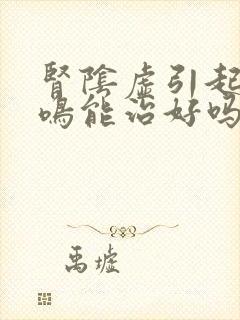 腎陰虛引起
鳴能治好吗
禹墟